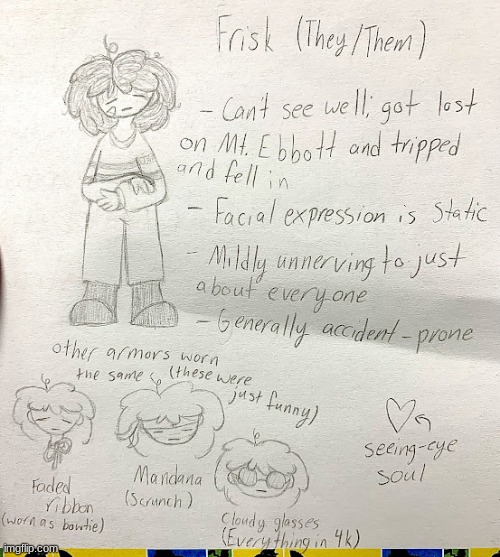 Frisk (They/Them)
- Can't see well; got lost
on Mt. Ebbott and tripped
and fell in
- Facial expression is static
- Mildly unnerving to just
about everyone
- Generally accident-prone
other armors worn
the same (these were
just funny)
Faded
ribbon
(worn as bowtie)
Mandana
(Scrunch)
Cloudy glasses
(Everything in 4k)
seeing-eye
soul
imgflip.com